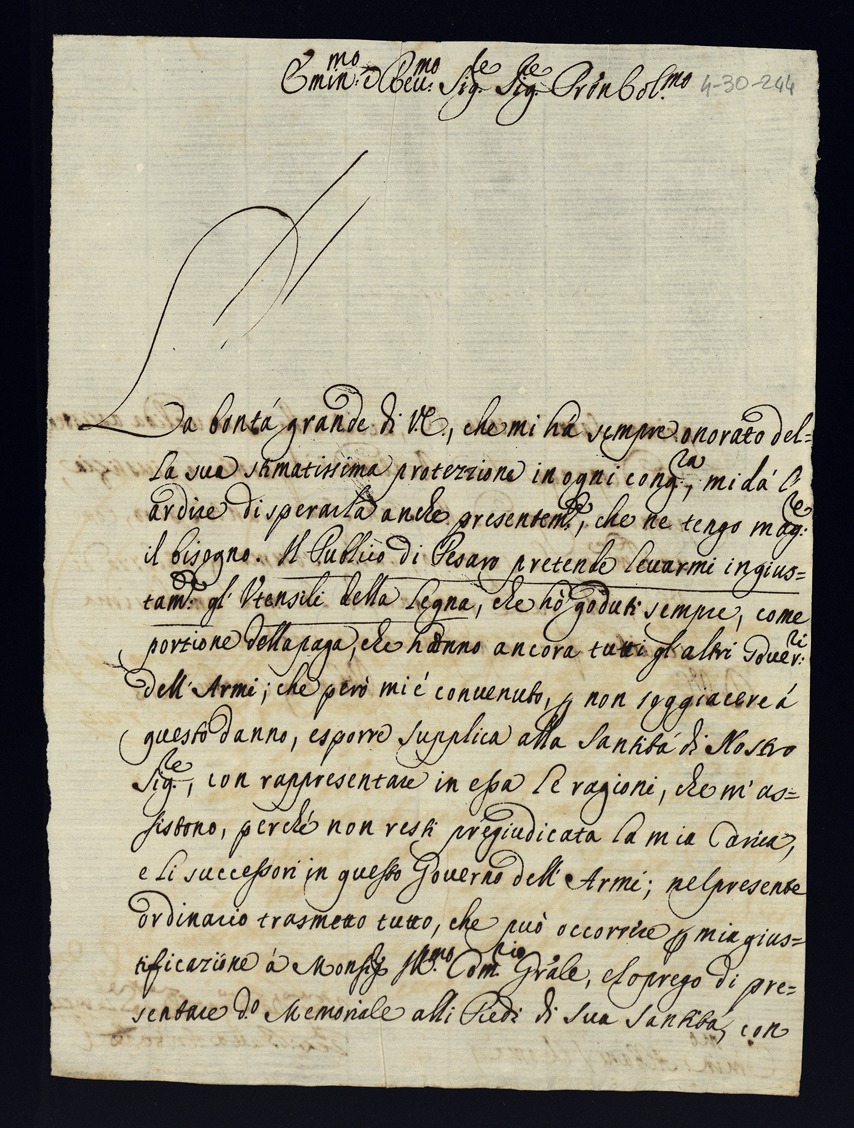 Emin.mo e Reu.mo Sig.re Sig.re Prôn Col.mo 4-30-244
La bontá grande di VE., che mi há sempre onorato del=
la sua stimatissima protezzione in ogni cong.ra, mi dá l'
ardire di sperarla anche presentem.te, che ne tengo mag.re
il bisogno. Il Publico di Pesaro pretende leuarmi ingius=
tam.te gl' Vtensili della Legna, che hò goduti sempre, come
portione della paga, che hanno ancora tutti gl' altri Gouer.ri
dell' Armi; che però mi é convenuto, p non soggiacere á
questo danno, esporre supplica alla Santità di Nostro
Sig.re, con rappresentare in essa le ragioni, che m' as=
sistono, perché non resti pregiudicata la mia Carica,
e li successori in questo Gouerno dell' Armi; nel presente
ordinario trasmetto tutto, che può occorrere p mia gius=
tificazione á Monsig. Ill.mo Com.rio Gñale, e lo prego di pre=
sentare d.o Memoriale alli Piedi di Sua Santità, con